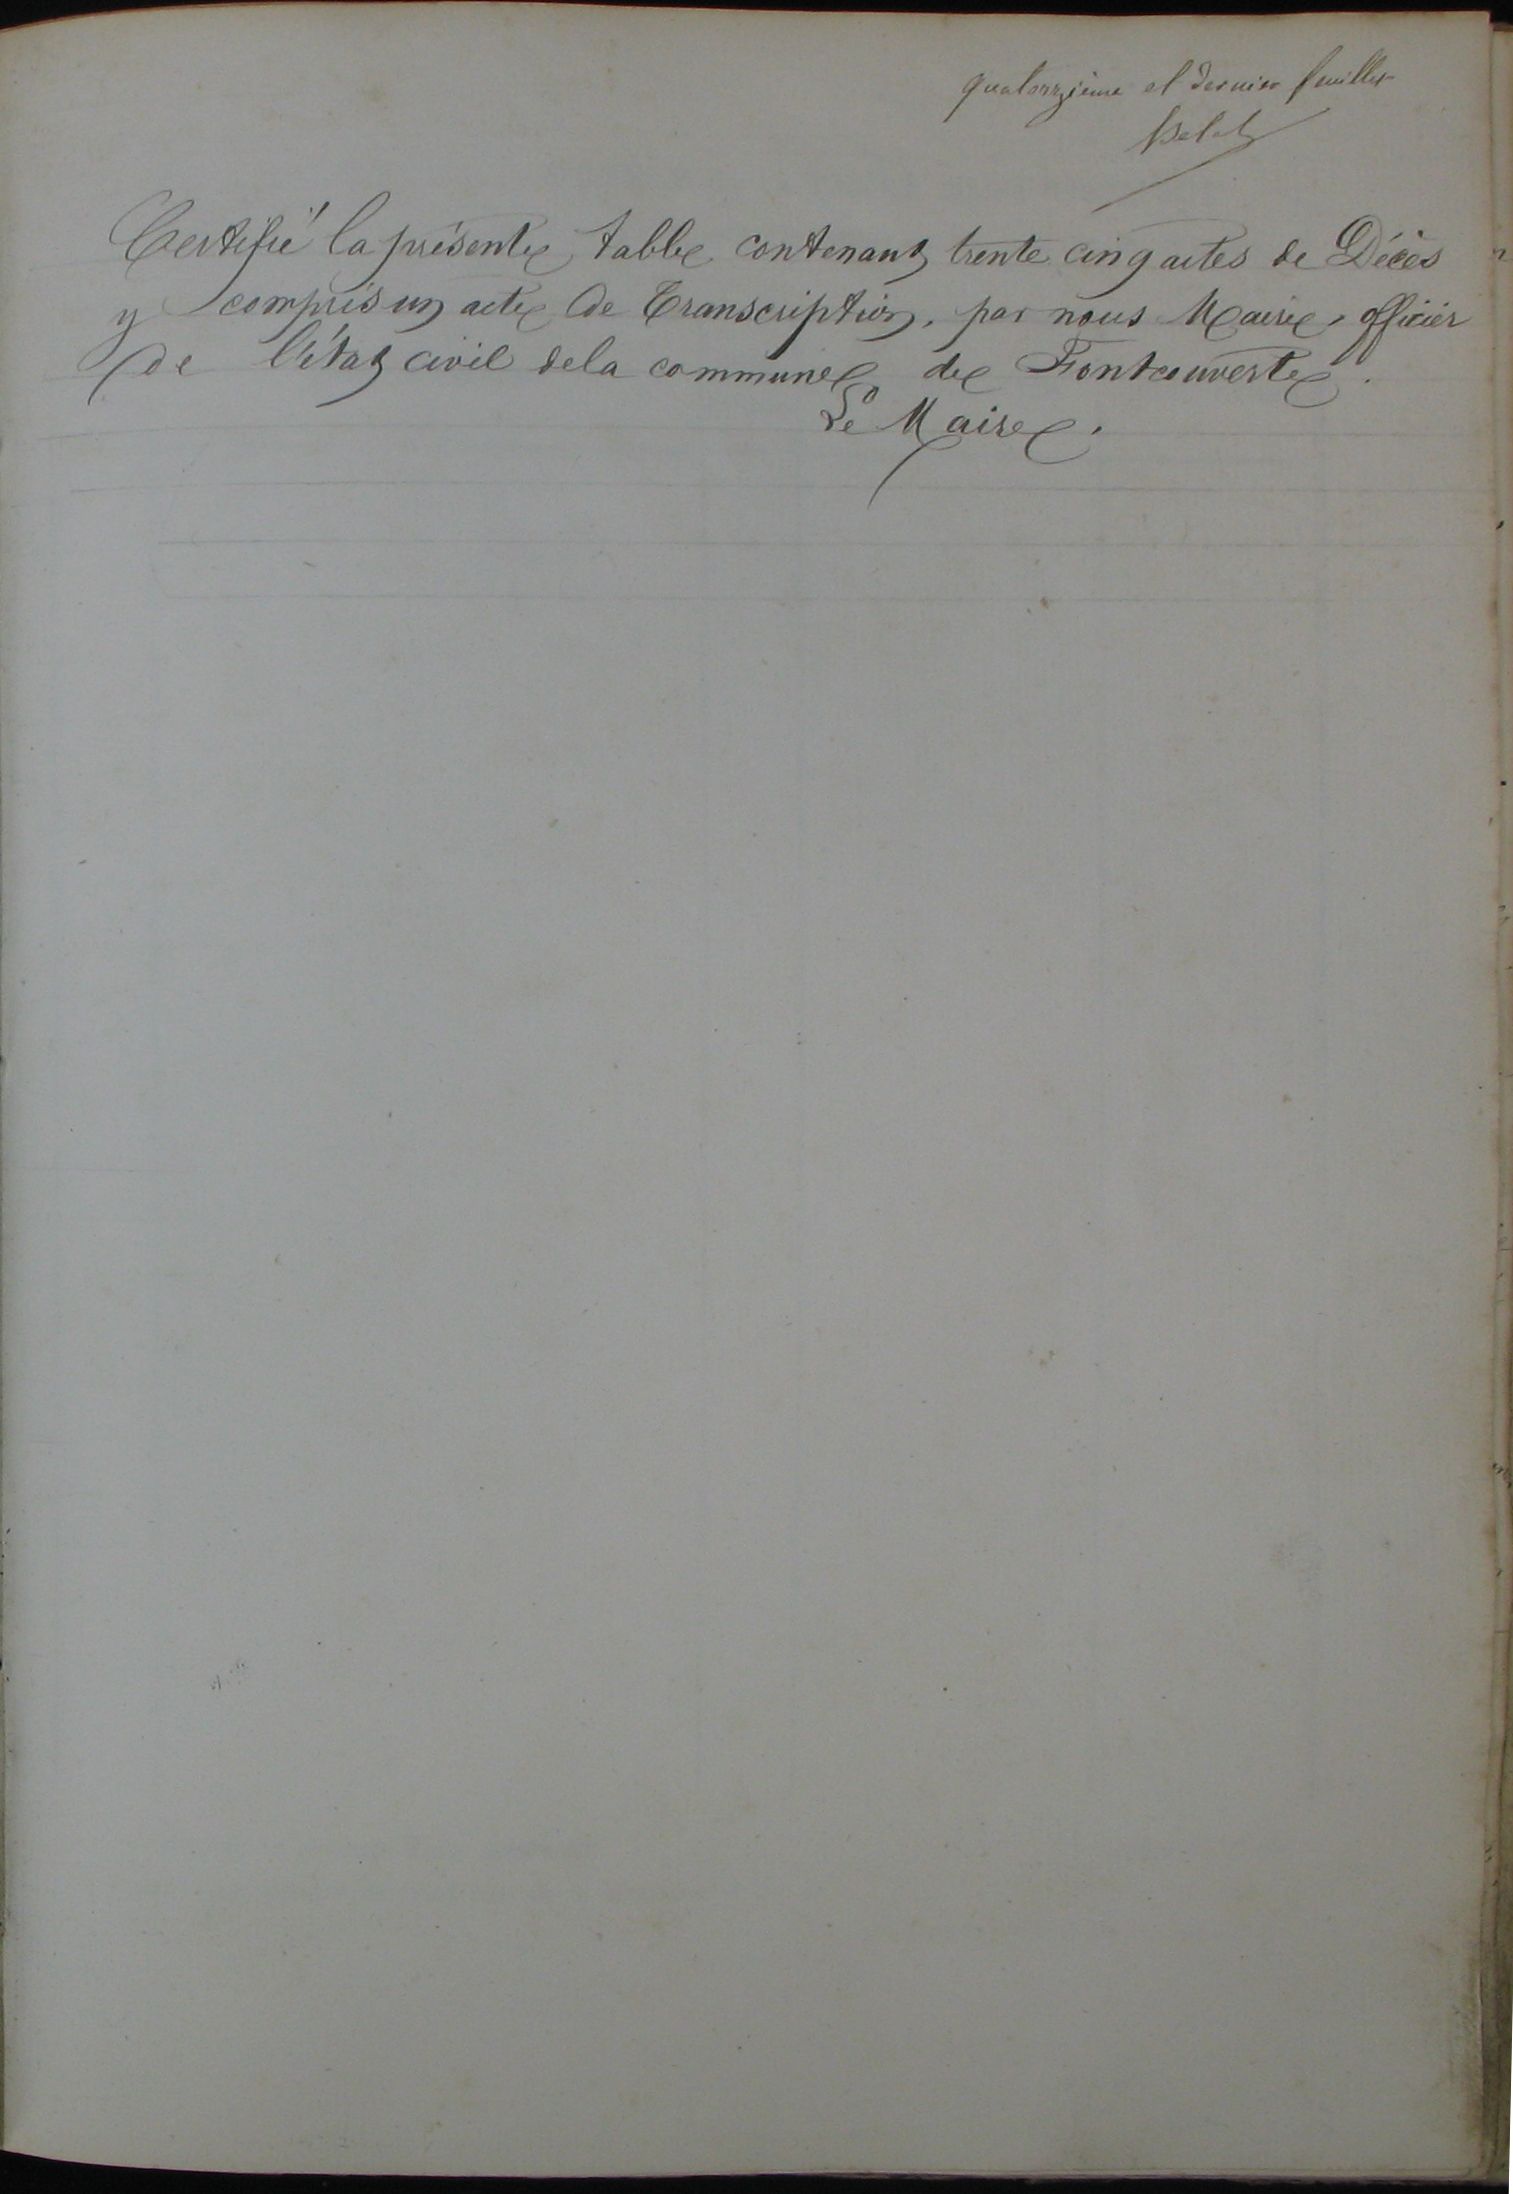 quatorzième et dernier feuillet
Certifié la présente table contenant trente cinq actes de Décès
y compris un acte de Transcription, par nous Maire, officier
de l'état civil de la commune de Fontcouverte.
Le Maire.